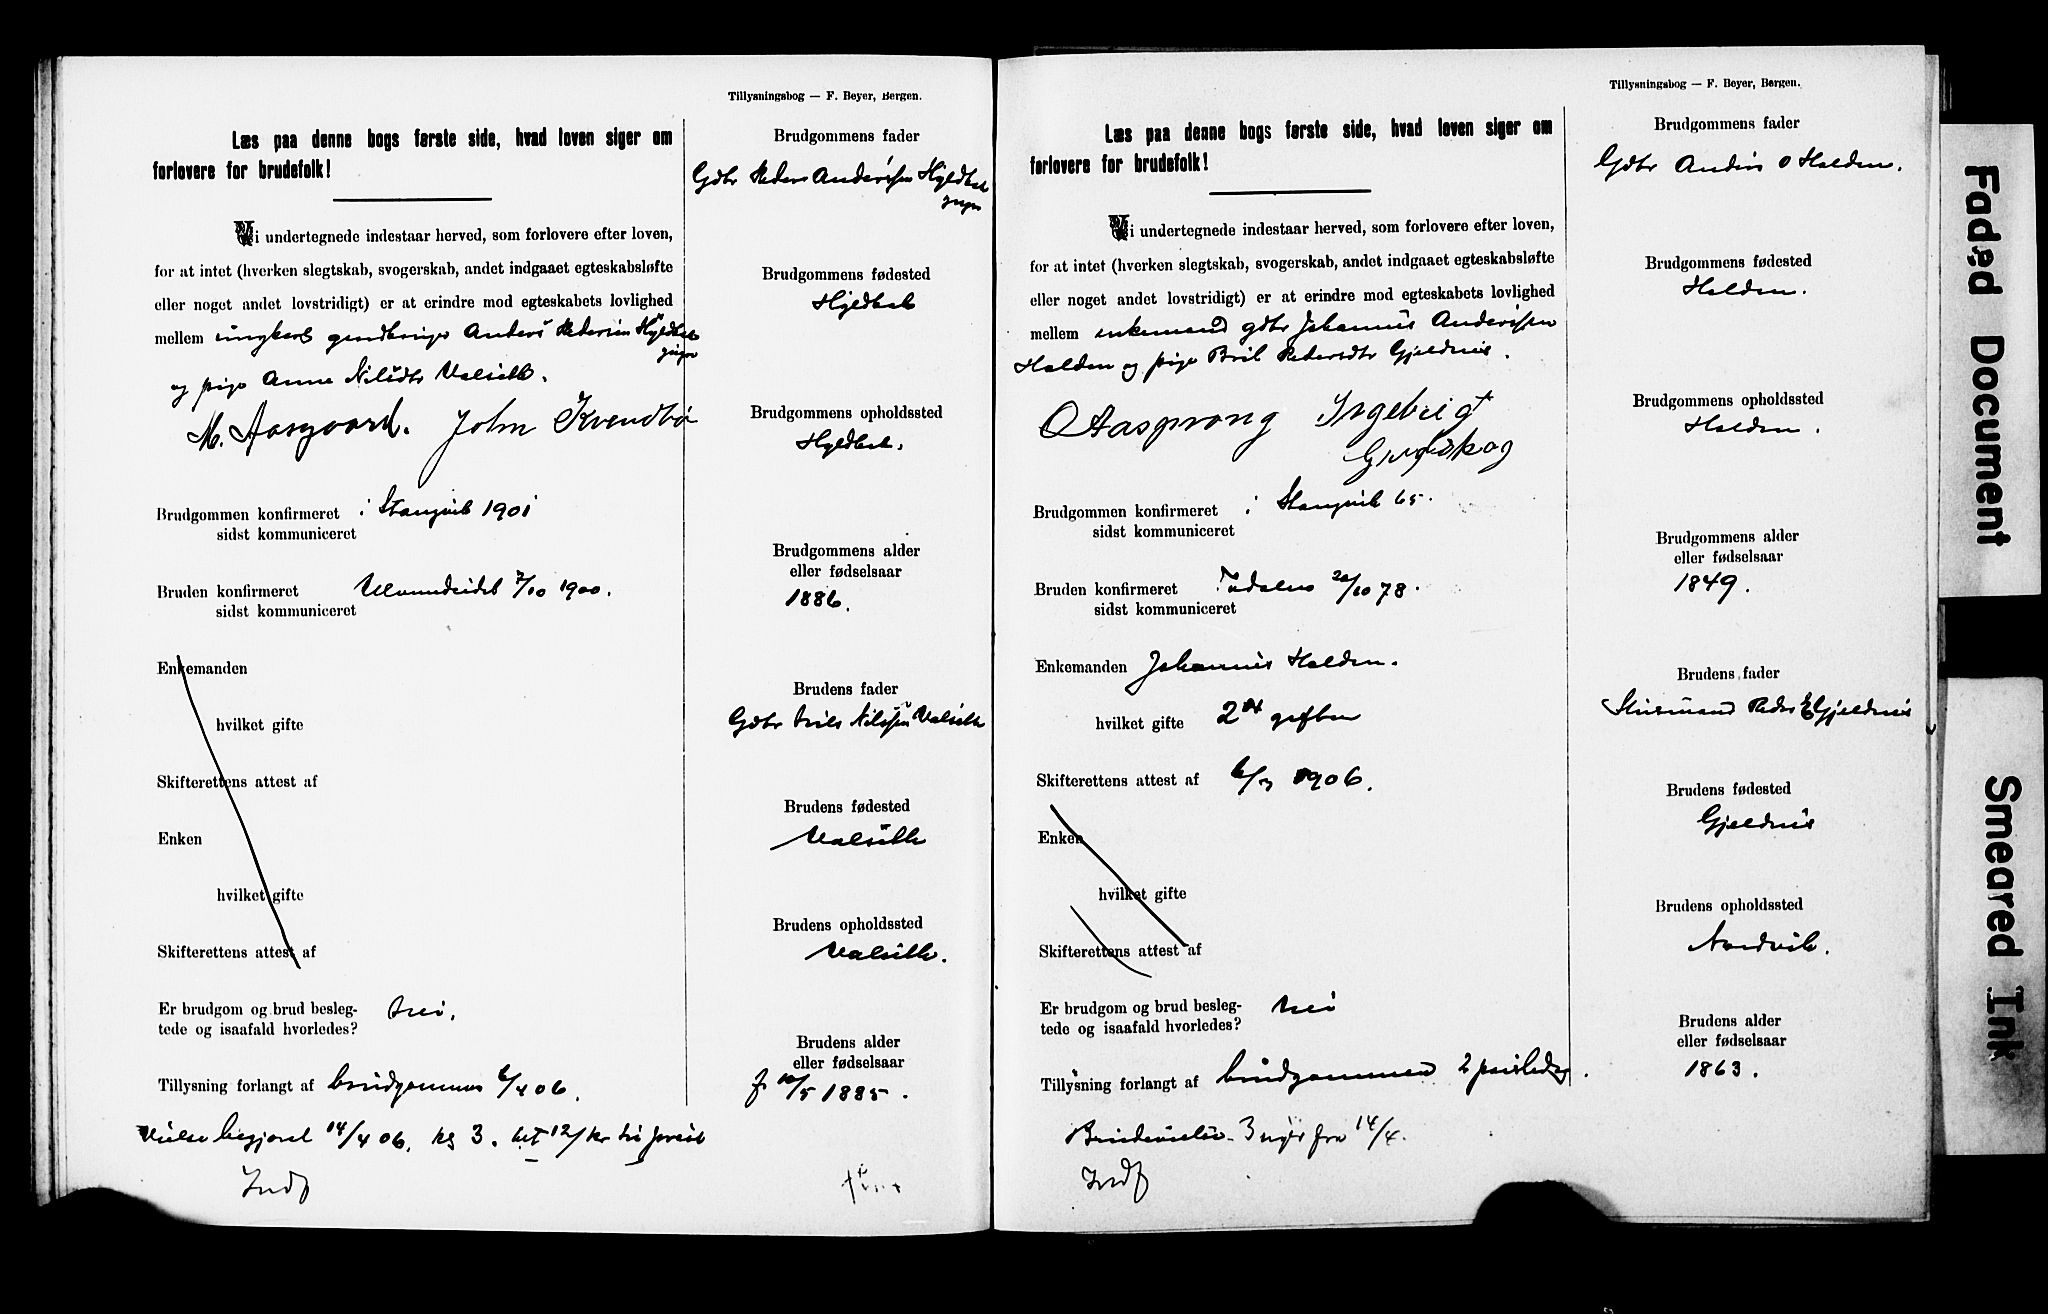 Tillysningsbog — F. Beyer, Bergen.
Læs paa denne bogs første side, hvad loven siger om
forlovere for brudefolk!
Vi undertegnede indestaar herved, som forlovere efter loven,
for at intet (hverken slegtskab, svogerskab, andet indgaaet egteskabsløfte
eller noget andet lovstridigt) er at erindre mod egteskabets lovlighed
mellem ungkarl Anders Pedersen
og pige Anne Nilsdr Valseth.
M. Aasgaard. John Kvendbø
Brudgommen konfirmeret i Stangvik 1901
sidst kommuniceret
Bruden konfirmeret 7/10 1900.
sidst kommuniceret
Enkemanden
hvilket gifte
Skifterettens attest af
Enken
hvilket gifte
Skifterettens attest af
Er brudgom og brud besleg-
tede og isaafald hvorledes? Nei.
Tillysning forlangt af brudgommen 6/4 06.
Vielse begjæret 14/4 06. kl 3.
Indf
Brudgommens fader
Gdbr Peder Andersen
Brudgommens fødested
Brudgommens opholdssted
Brudgommens alder
eller fødselsaar
1886.
Brudens fader
Gdbr Nils Nilssen Valseth
Brudens fødested
Valseth
Brudens opholdssted
Valseth.
Brudens alder
eller fødselsaar
f 10/5 1885.
Tillysningsbog — F. Beyer, Bergen.
Læs paa denne bogs første side, hvad loven siger om
forlovere for brudefolk!
Vi undertegnede indestaar herved, som forlovere efter loven,
for at intet (hverken slegtskab, svogerskab, andet indgaaet egteskabsløfte
eller noget andet lovstridigt) er at erindre mod egteskabets lovlighed
mellem enkemand gdbr Johannes Anderssen
Halden og pige Brit Pedersdtr Gjeldnes.
O Aasprong Ingebrigt
Brudgommen konfirmeret i Stangvik 65.
sidst kommuniceret
Bruden konfirmeret Todalen 20/10 78.
sidst kommuniceret
Enkemanden Johannes Halden.
hvilket gifte 2det giften
Skifterettens attest af 6/3 1906.
Enken
hvilket gifte
Skifterettens attest af
Er brudgom og brud besleg-
tede og isaafald hvorledes? Nei
Tillysning forlangt af brudgommen 2 paaskedag.
Brudevielse 3 uger fra 14/4.
Indf
Brudgommens fader
Gdbr Anders O Halden.
Brudgommens fødested
Halden.
Brudgommens opholdssted
Halden.
Brudgommens alder
eller fødselsaar
1849.
Brudens fader
Husmand Peder E Gjeldnes
Brudens fødested
Gjeldnes
Brudens opholdssted
Nordvik.
Brudens alder
eller fødselsaar
1863.
Faded Document
Smeared Ink